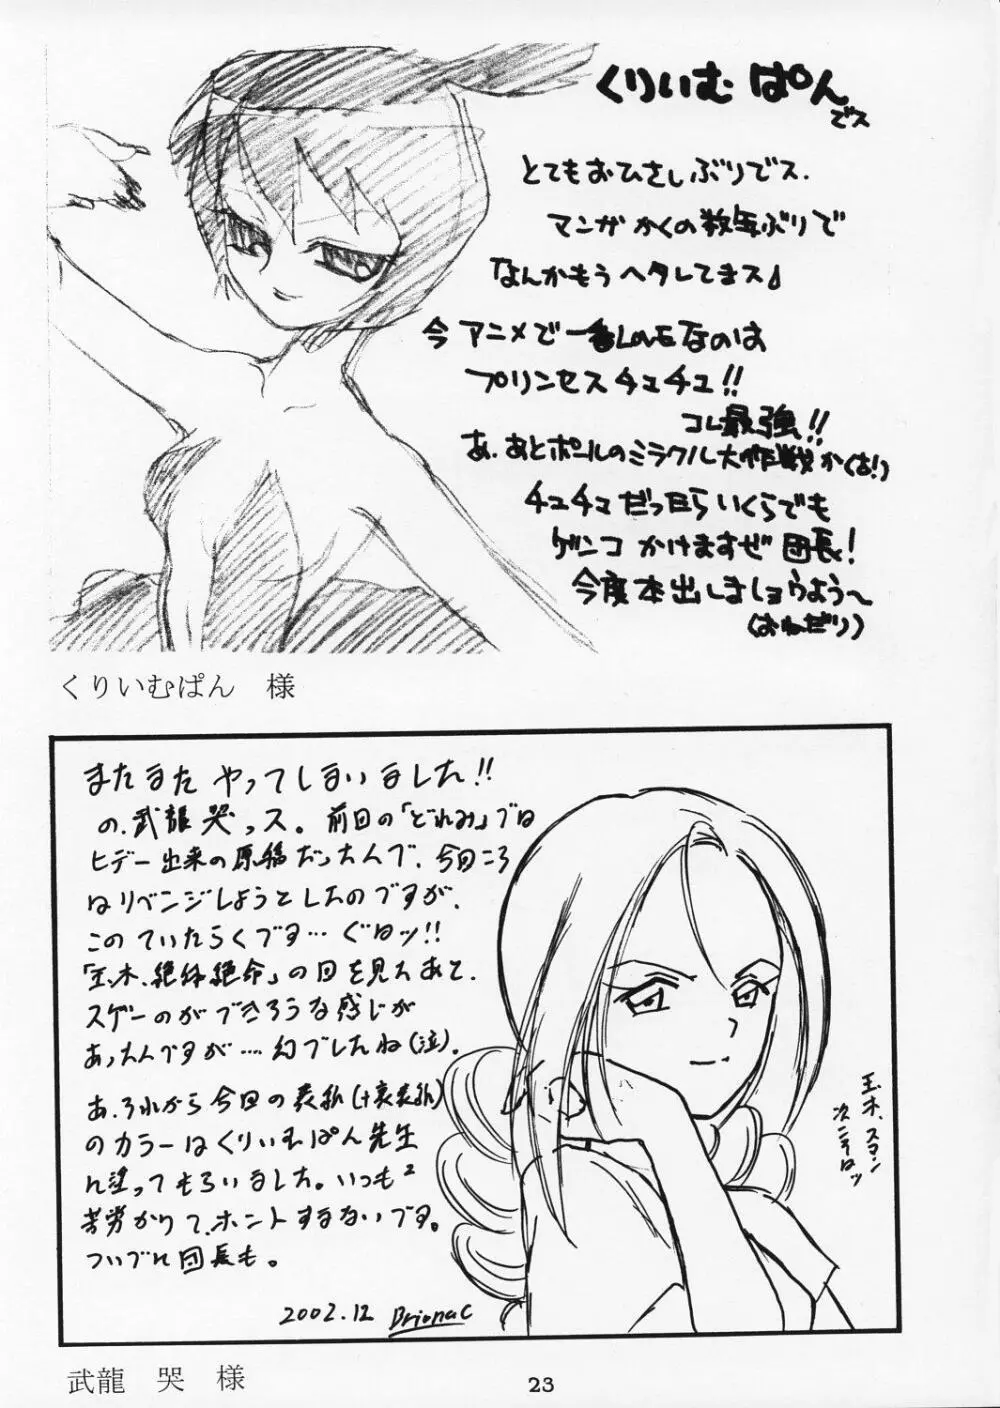 くりいむぱん
でス
とてもおひさしぶりでス.
マンガかくの数年ぶりで
なんかもうヘタレてまス
今アニメで一番LOVEなのは
プリンセスチュチュ!!
コレ最強!!
あ.あとポールのミラクル大作戦か(古!)
チュチュだったらいくらでも
ゲンコかけますぜ団長!
今度本出しましョうよう〜
(おねだり)
くりいむぱん 様
またまたやってしまいました!!
の、武龍哭っス。前回の「どれみ」では
ヒデー出来の原稿だったんで、今回こそ
はリベンジしようとしたのですが、
このていたらくです…ぐはッ!!
「玉木、絶体絶命」の回を見たあと、
スゲーのができそうな感じが
あったんですが…幻でしたね(泣)。
あ、それから今回の表紙(+裏表紙)
のカラーはくりいむぱん先生
に塗ってもらいました。いつも²
苦労かけて、ホントすまないです。
ついでに団長も。
2002.12 Brionac
玉木、スマン
次こそはッ
武龍 哭 様
23